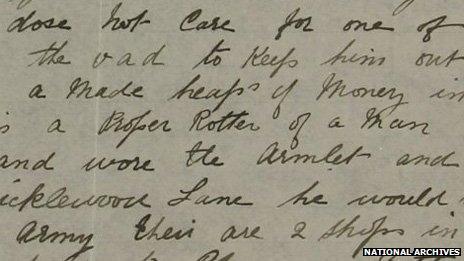 dose not Care for one of
the vad to Keep him out
a Made heaps of Money in
is a Proper Rotter of a Man
and wore the Armlet and
icklewood Lane he would
Army their are 2 ships in
NATIONAL ARCHIVES